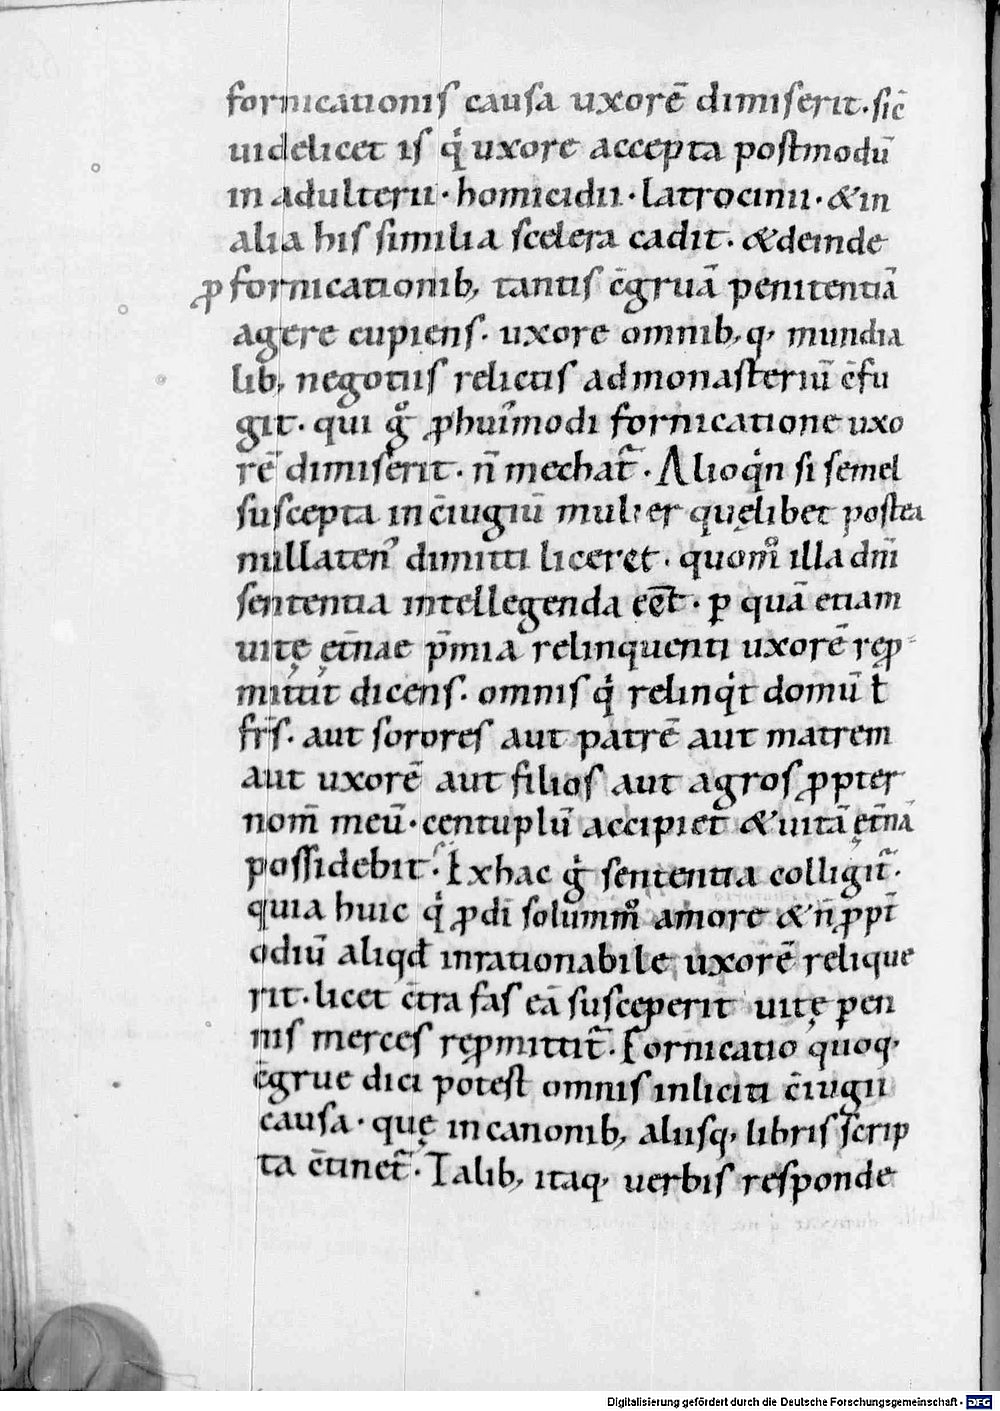 fornicationis causa uxorē dimiserit. sic̄
uidelicet is q̇ uxore accepta postmodū
in adulterii· homicidii· latrocinii· & in
alia his similia scelera cadit. & deinde
ꝓ fornicationib; tantis c̄gruā penitentiā
agere cupiens. uxore omnib; q; mundia
lib; negotiis relictis ad monasteriū c̄fu
git. qui g̊ ꝓ hui᷒modi fornicatione uxo
rē dimiserit. n̄ mechat᷑. Alioq̇n si semel
suscepta in c̄iugiū mulier quęlibet postea
nullaten᷒ dimitti liceret. quom̊ illa dn̄i
sententia intellegenda eēt. ꝑ quā etiam
uitę ęt̄nae p̄mia relinquenti uxorē rep̱ꝓ-
mittit dicens. omnis q̇ relinq̇t domū ł
fr̄s. aut sorores aut patrē aut matrem
aut uxorē aut filios aut agros ꝓpter
nom̄ meū· centuplū accipiet & uitā ęt̄nā
possidebit. Ex hac g̊ sententia colligit᷑.
quia huic q̇ ꝓ dī solummº amore & n̄ ꝓpt̄
odiū aliqđ inrationabile uxorē relique
rit. licet c̄tra fas eā susceperit uitę ꝑen
nis merces reꝓmittit᷑. Fornicatio quoq;
c̄grue dici potest omnis inliciti c̄iugii
causa· quę in canonib; aliisq; libris scrip
ta c̄tinet᷑. Talib; itaq; uerbis responde
Digitalisierung gefördert durch die Deutsche Forschungsgemeinschaft - DFG